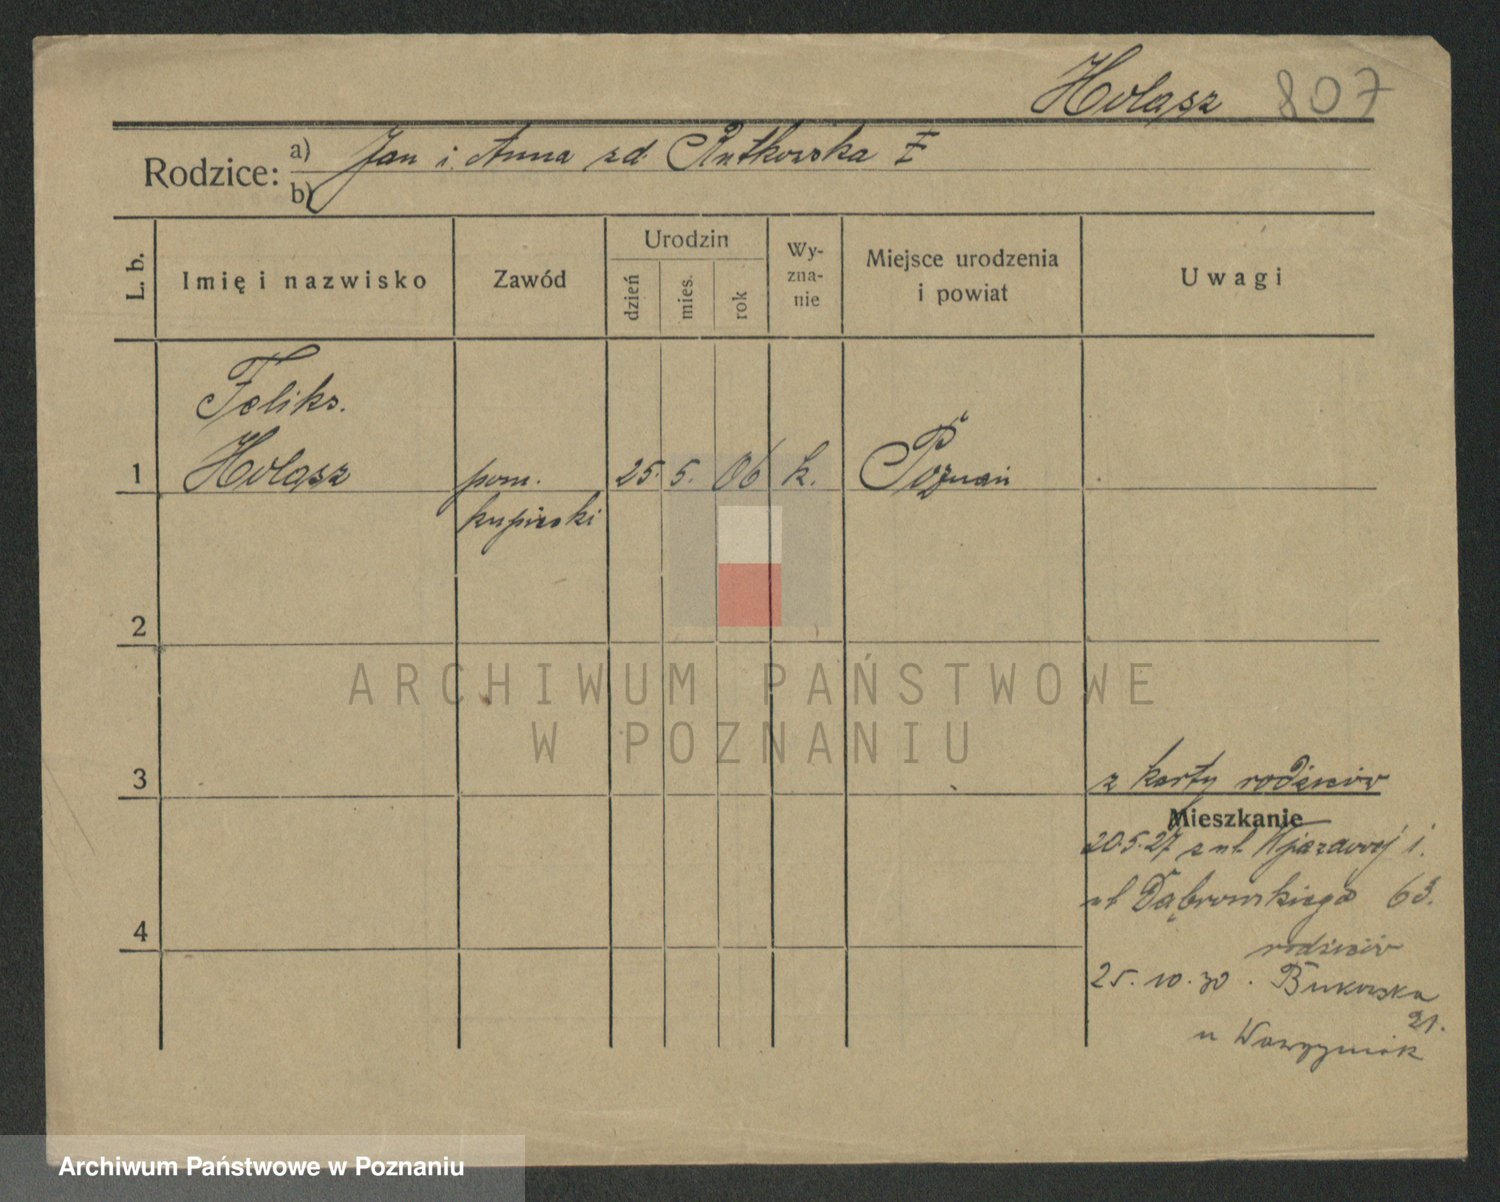 Hołasz 807
Rodzice: a) Jan i Anna zd. Rutkowska
b)
L. b.
Imię i nazwisko
Zawód
Urodzin
dzień
mies.
rok
Wy-
zna-
nie
Miejsce urodzenia
i powiat
Uwagi
Feliks.
1 Hołasz pom. 25. 5. 06 k. Poznań
kupiecki
2
ARCHIWUM PAŃSTWOWE
W POZNANIU
3 z karty rodziców
Mieszkanie
20.5.27 z ul. Wjazdowej i.
ul Dąbrowskiego 63.
4 rodziców
25. 10. 30. Bukowska
21.
u Wawrzyniak
Archiwum Państwowe w Poznaniu